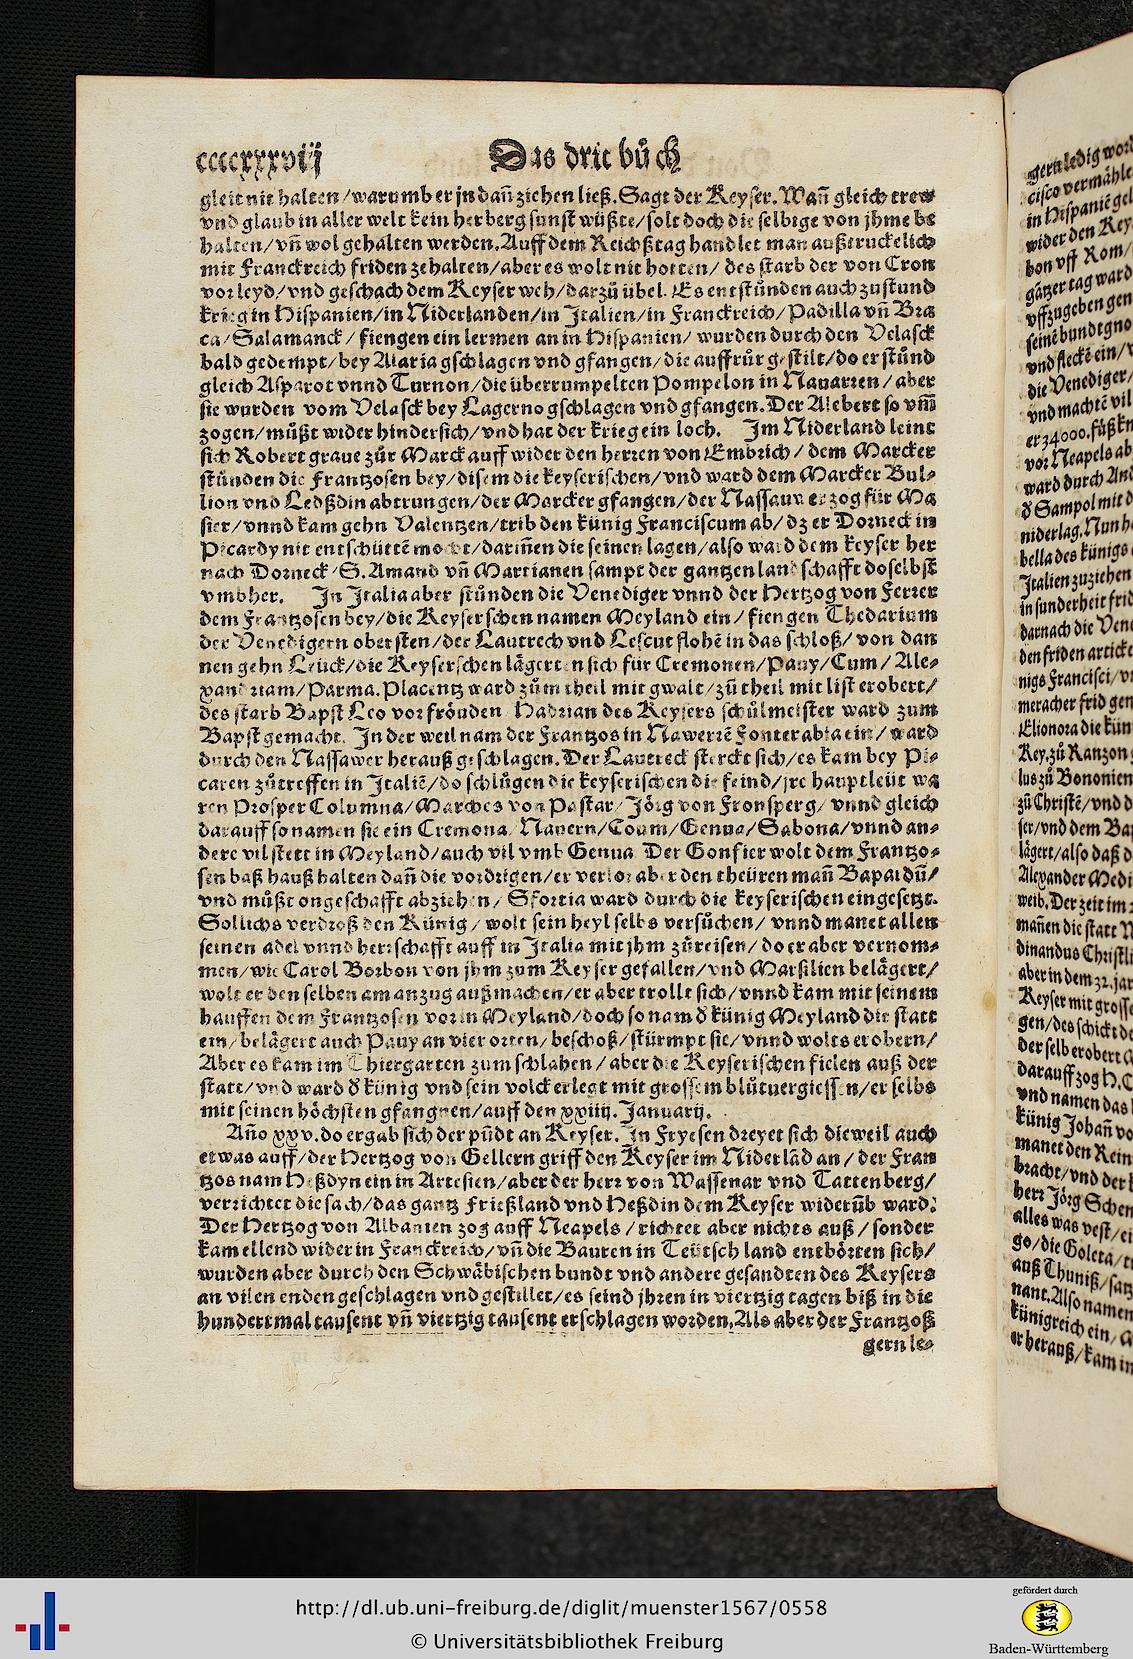 ccccxxxvij Das drit bůch
gleit nit halten/warumb er jn dañ ziehen ließ. Sagt der Keyser. Wañ gleich trew
vnd glaub in aller welt kein herberg sunst wüßte/solt doch die selbige von jhme be
halten/vñ wol gehalten werden. Auff dem Reichßtag handlet man außtruckelich
mit Franckreich friden zehalten/aber es wolt nit hotten/des starb der von Croy
vor leyd/vnd geschach dem Keyser weh/darzů übel. Es entstůnden auch zustund
krieg in Hispanien/in Niderlanden/in Italien/in Franckreich/Padilla vñ Bra
ca/Salamanck/fiengen ein lermen an in Hispanien/wurden durch den Velasck
bald gedempt/bey Alaria gschlagen vnd gfangen/die auffrůr gestilt/do erstůnd
gleich Asparot vnnd Turnon/die überrumpelten Pompelon in Nauarren/aber
sie wurden vom Velasck bey Lagerno gschlagen vnd gfangen. Der Alebert so vm̃
zogen/můßt wider hindersich/vnd hat der krieg ein loch. Im Niderland leint
sich Robert graue zůr Marck auff wider den herren von Embrich/dem Marcker
stůnden die Frantzosen bey/disem die keyserischen/vnd ward dem Marcker Bul-
lion vnd Ledßdin abtrungen/der Marcker gfangen/der Nassauw er zog für Ma
sier/vnnd kam gehn Valentzen/trib den künig Franciscum ab/dz er Dorneck in
Picardy nit entschüttē mocht/dariñen die seinen lagen/also ward dem keyser her
nach Dorneck/S. Amand vñ Martianen sampt der gantzen landschafft doselbst
vmbher. In Italia aber stůnden die Venediger vnnd der Hertzog von Ferrer
dem Frantzosen bey/die Keyserschen namen Meyland ein/fiengen Thedarium
der Venedigern obersten/der Lautrech vnd Lescut flohē in das schloß/von dan
nen gehn Leück/die Keyserschen lägerten sich für Cremonen/Pauy/Cum/Ale-
xandriam/Parma. Placentz ward zům theil mit gwalt/zů theil mit list erobert/
des starb Bapst Leo vor fröuden Hadrian des Keysers schůlmeister ward zum
Bapst gemacht. In der weil nam der Frantzos in Nawerrē Fonterabia ein/ward
durch den Nassawer herauß geschlagen. Der Lautreck sterckt sich/es kam bey Pi-
caren zůtreffen in Italiē/do schlůgen die keyserischen die feind/jre hauptleüt wa
ren Prosper Columna/Marches von Pastar/Jörg von Fronsperg/vnnd gleich
darauff so namen sie ein Cremona/Nauern/Coum/Genua/Sabona/vnnd an-
dere vil stett in Meyland/auch vil vmb Genua Der Gonfier wolt dem Frantzo-
sen baß hauß halten dañ die vordrigen/er verlor aber den theüren mañ Bapardū/
vnd můßt ongeschafft abziehen/Sfortia ward durch die keyserischen eingesetzt.
Sollichs verdroß den Künig/wolt sein heyl selbs versůchen/vnnd manet allen
seinen adel vnnd herrschafft auff in Italia mit jhm zůreisen/do er aber vernom-
men/wie Carol Borbon von jhm zum Keyser gefallen/vnd Marsilien belägert/
wolt er den selben am anzug außmachen/er aber trollt sich/vnnd kam mit seinem
hauffen dem Frantzosen vor in Meyland/doch so nam ď künig Meyland die statt
ein/belägert auch Pauy an vier orten/beschoß/stürmpt sie/vnnd wolts erobern/
Aber es kam im Thiergarten zum schlahen/aber die Keyserischen fielen auß der
statt/vnd ward ď künig vnd sein volck erlegt mit grossem blůtuergiessen/er selbs
mit seinen höchsten gfangnen/auff den xxiiij. Januarij.
Año xxv. do ergab sich der pūdt an Keyser. In Fryesen dreyet sich dieweil auch
etwas auff/der Hertzog von Gellern griff den Keyser im Niderlād an/der Fran
tzos nam Heßdyn ein in Artesien/aber der herr von Wassenar vnd Tattenberg/
verrichtet die sach/das gantz Frießland vnd Heßdin dem Keyser widerūb ward.
Der Hertzog von Albanien zog auff Neapels/richtet aber nichts auß/sonder
kam ellend wider in Franckreich/vñ die Bauren in Teütsch land entbörten sich/
wurden aber durch den Schwäbischen bundt vnd andere gesandten des Keysers
an vilen enden geschlagen vnd gestillet/es seind jhren in viertzig tagen biß in die
hundert mal tausent vñ viertzig tausent erschlagen worden. Als aber der Frantzoß
gern le-
gern ledig word
cisco vermähle
in Hispanië gel
wider den Key
bon vff Rom/
gātzer tag ward
vffzugeben gen
seinē bundtgno
vnd fleckē ein/
die Venediger/
vnd machtē vil
er 34000. fůßkn
vor Neapels ab
ward durch And
ď Sampol mit d
niderlag. Nun h
bella des künigs
Italien zuziehen
in sunderheit frid
darnach die Vene
den friden articke
nigs Francisci/v
meracher frid gen
Elionora die kün
Key. zů Ranzon
lus zů Bononien
zů Christē/vnd d
ser/vnd dem Bap
lägert/also daß d
Alexander Medi
weib. Der zeit im
mañen die statt
dinandus Christli
aber in dem 32. jar
Keyser mit grosse
gen/des schickt de
der selb erobert
darauff zog H. C
vnd namen das
künig Johañ vo
manet den Rein
bracht/vnd der
herr Jörg Schen
alles was vest/ei
go/die Goleta/
auß Thuniß/satz
nant. Also namen
künigreich ein/
er herauß/kam in
http://dl.ub.uni-freiburg.de/diglit/muenster1567/0558
© Universitätsbibliothek Freiburg
gefördert durch
Baden-Württemberg